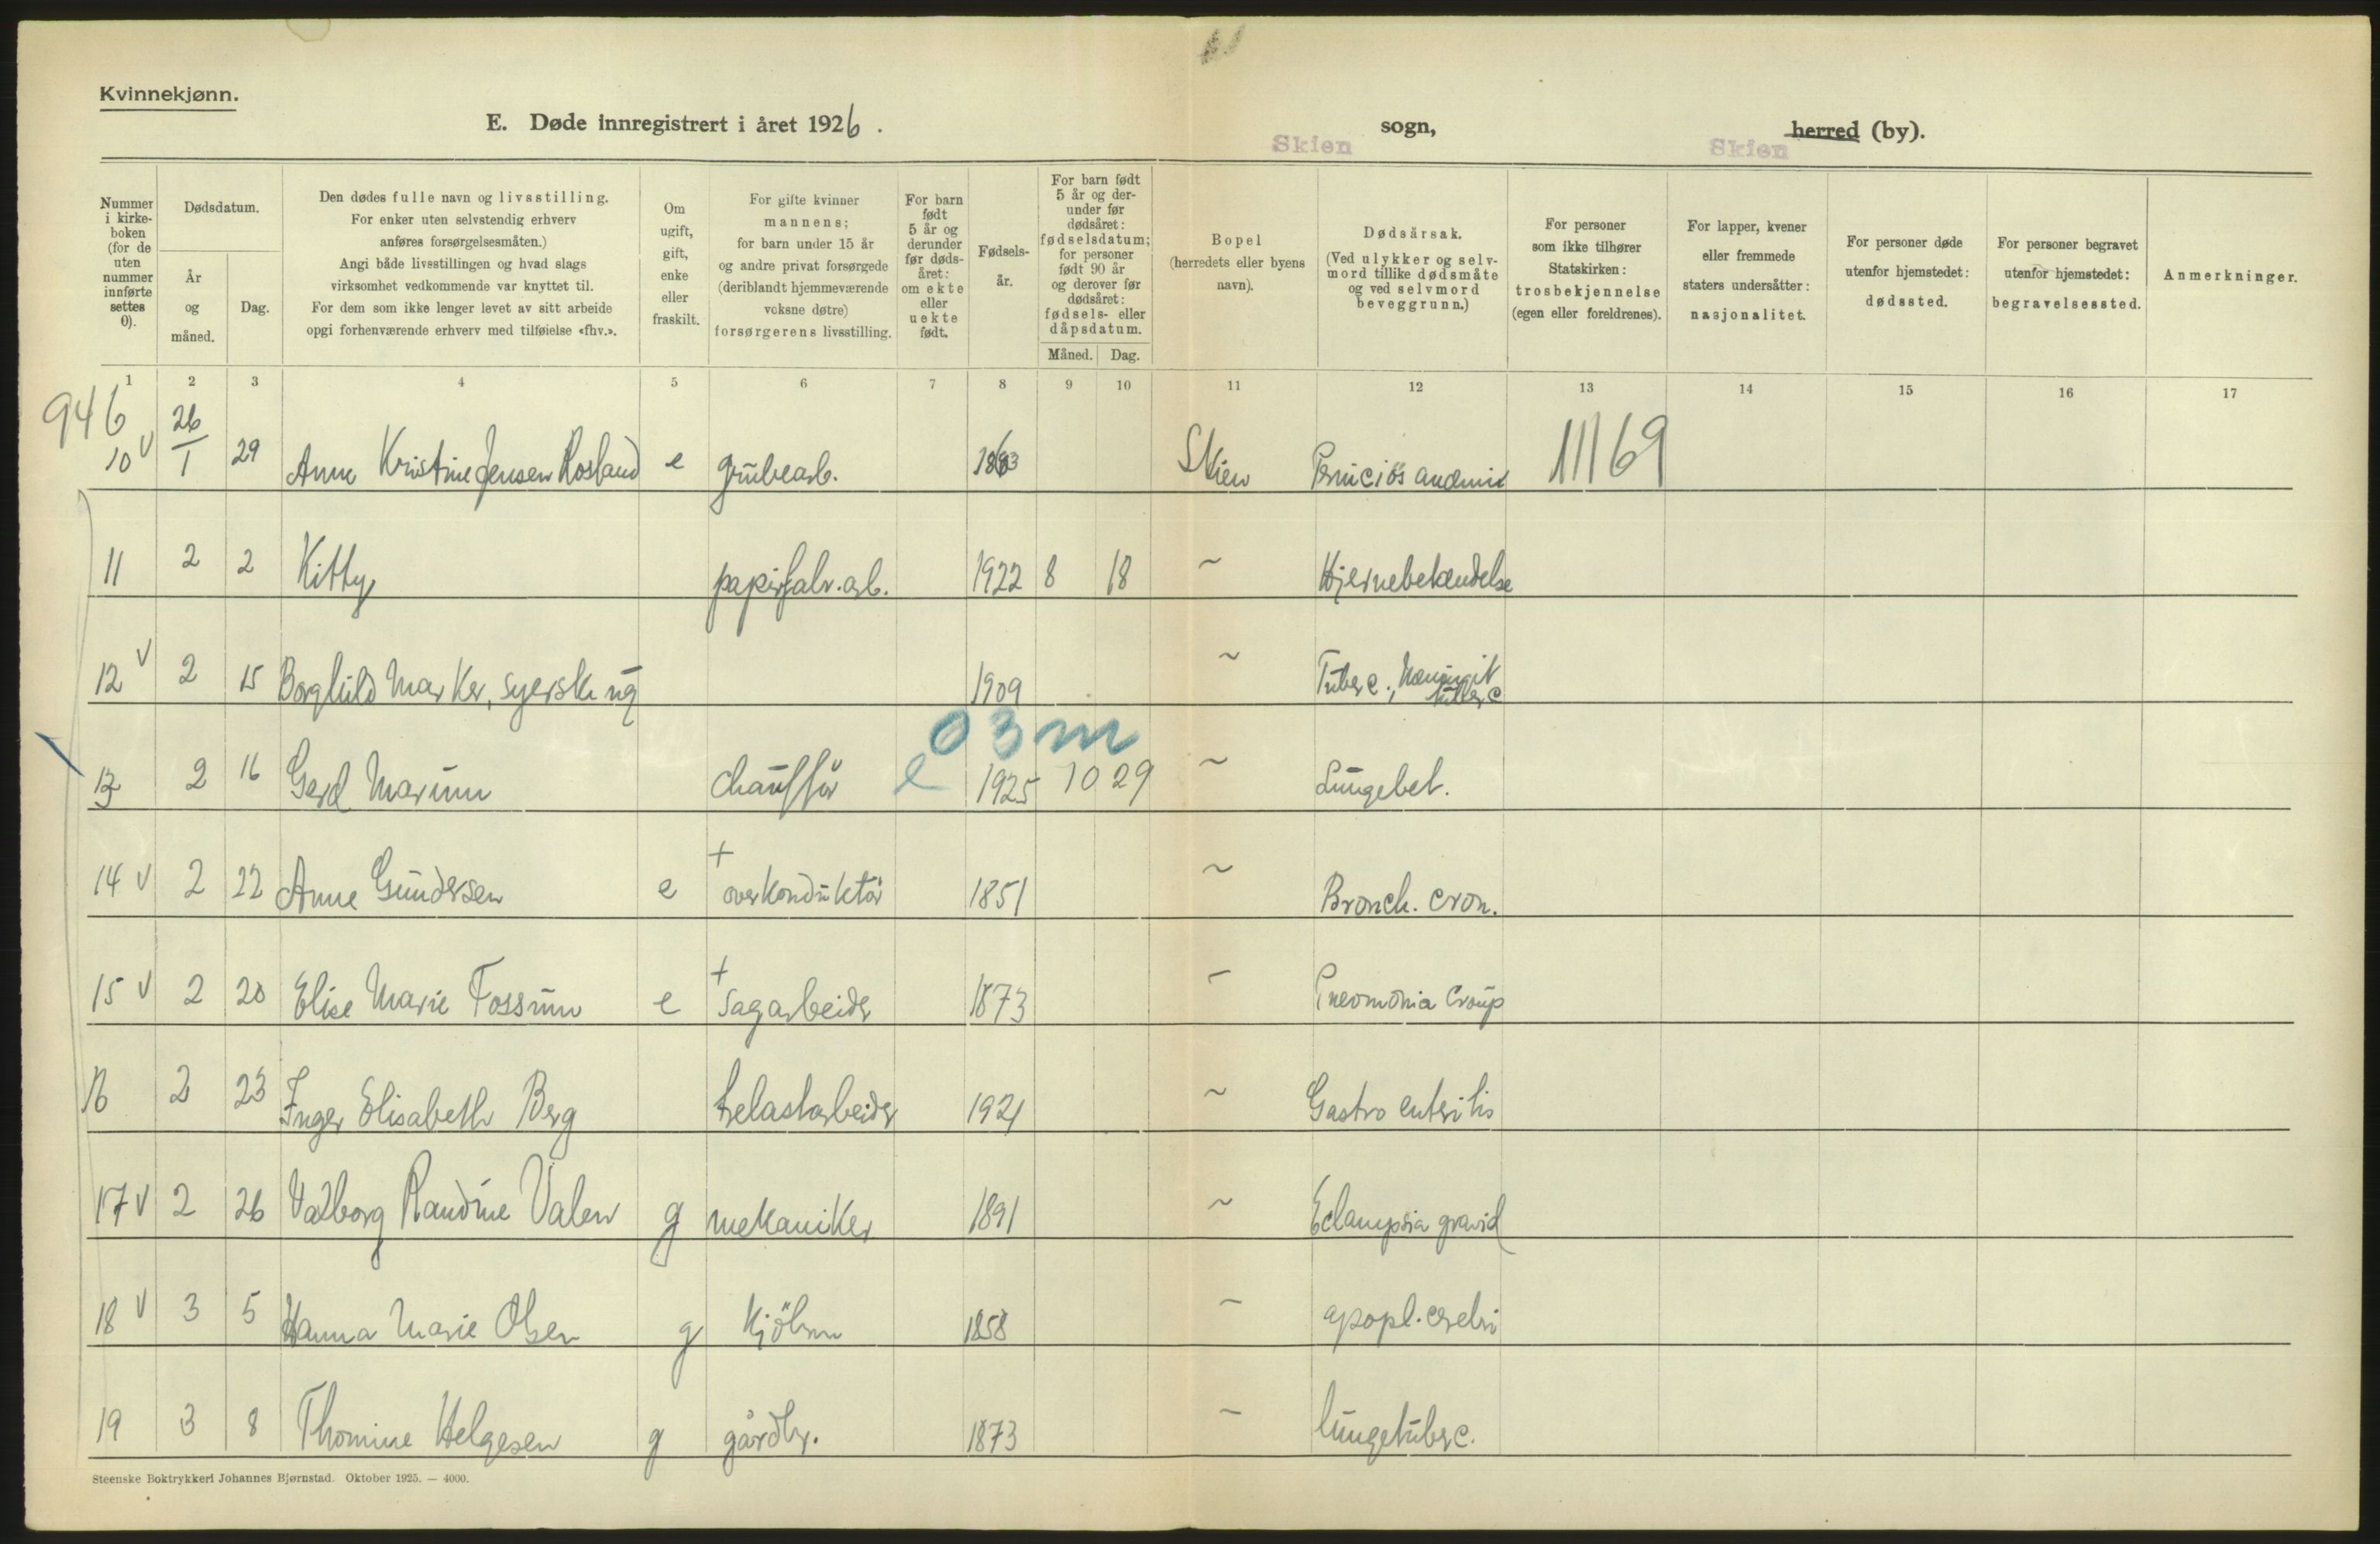 Kvinnekjønn.
E. Døde innregistrert i året 1926. Skien sogn, Skien herred (by).
Nummer i kirke-boken (for de uten nummer innførte settes 0).
Dødsdatum.
År og måned.
Dag.
Den dødes fulle navn og livsstilling.
For enker uten selvstendig erhverv
anføres forsørgelsesmåten.)
Angi både livsstillingen og hvad slags
virksomhet vedkommende var knyttet til.
For dem som ikke lenger levet av sitt arbeide
opgi forhenværende erhverv med tilføielse «fhv.».
Om
ugift,
gift,
enke
eller
fraskilt.
For gifte kvinner
mannens;
for barn under 15 år
og andre privat forsørgede
(deriblandt hjemmeværende
voksne døtre)
forsørgerens livsstilling.
For barn
født
5 år og
derunder
før døds-
året:
om ekte
eller
uekte
født.
Fødsels-
år.
For barn født
5 år og der-
under før
dødsåret:
fødselsdatum;
for personer
født 90 år
og derover før
dødsåret:
fødsels- eller
dåpsdatum.
Måned. Dag.
Bopel
(herredets eller byens
navn).
Dødsårsak.
(Ved ulykker og selv-
mord tillike dødsmåte
og ved selvmord
beveggrunn.)
For personer
som ikke tilhører
Statskirken:
trosbekjennelse
(egen eller foreldrenes).
For lapper, kvener
eller fremmede
staters undersåtter:
nasjonalitet.
For personer døde
utenfor hjemstedet:
dødssted.
For personer begravet
utenfor hjemstedet:
begravelsessted.
Anmerkninger.
1 2 3 4 5 6 7 8 9 10 11 12 13 14 15 16 17
946
10 v 26/1 29 Anne Kristine Jensen Rosland e grubearb. Skien Perniciös anæmi 11169
11 2 2 Kitty papirfabr.arb. 1922 8 18 ~ Hjernebetændelse
12 v 2 15 Borghild Marker, syerske ug 1909 ~ Tuberc., Meningit tuberc
03m
13 2 16 Gerd Marum chauffør e 1925 10 29 ~ Lungebet.
14 v 2 22 Anne Gundersen e + overkonduktør 1851 ~ Bronch. cron.
15 v 2 20 Elise Marie Fossum e + sagarbeider 1873 - Pneomonia croup
16 2 23 Inger Elisabeth Berg 1921 ~ Gastro enteritis
17 v 2 26 Valborg Randine Valen g mekaniker 1891 ~ Eclampsia gravid
18 v 3 5 Hanna Marie Olsen g kjøbm 1858 - apopl. cerebri
19 3 8 Thomine Helgesen g gårdbr. 1873 - lungetuberc.
Steenske Boktrykkeri Johannes Bjørnstad. Oktober 1925. — 4000.